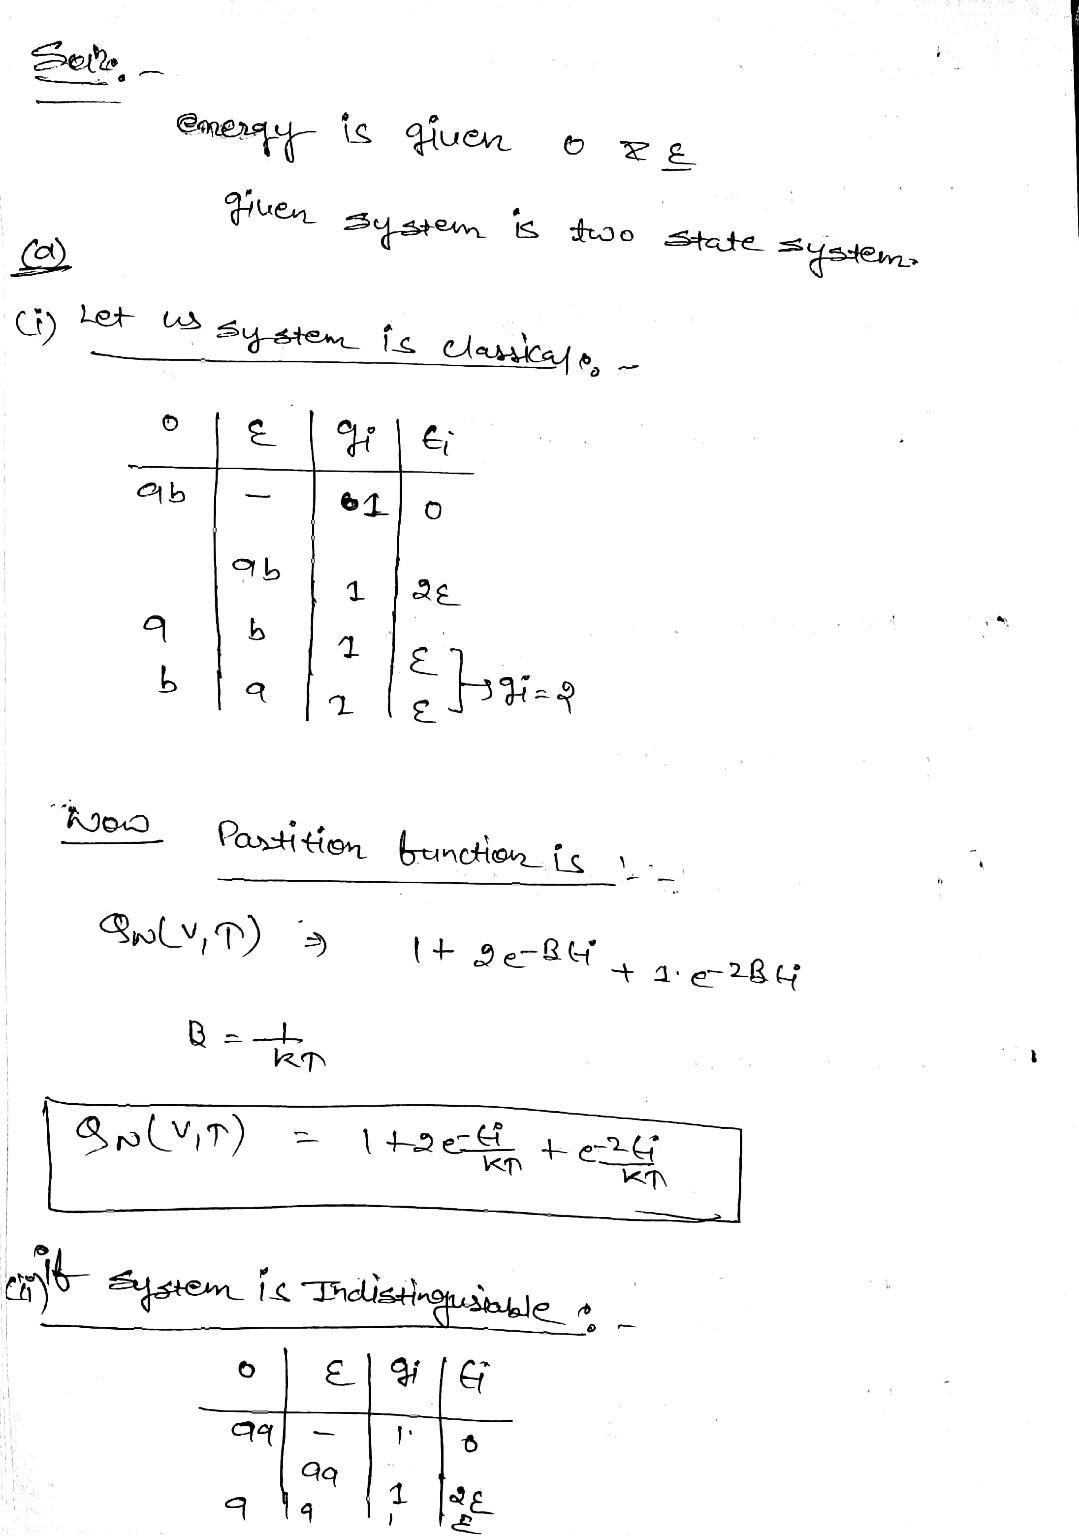 Soln. -
energy is given 0 & ε
given system is two state system.
(a)
(i) Let us system is classical :-
0 | ε | gi | Ei
ab | - | 1 | 0
ab | 1 | 2ε
a | b | 1 | ε
b | a | 1 | ε } → gi = 2
Now Partition function is :-
QN(V,T) ⇒ 1 + 2e-βEi + 1.e-2βEi
β = 1/kT
QN(V,T) = 1 + 2e-Ei/KT + e-2Ei/KT
(ii) if system is Indistingusiable :-
0 | ε | gi | Ei
aa | - | 1. | 0
aa | 1 | 2ε
a | a | 1 | ε